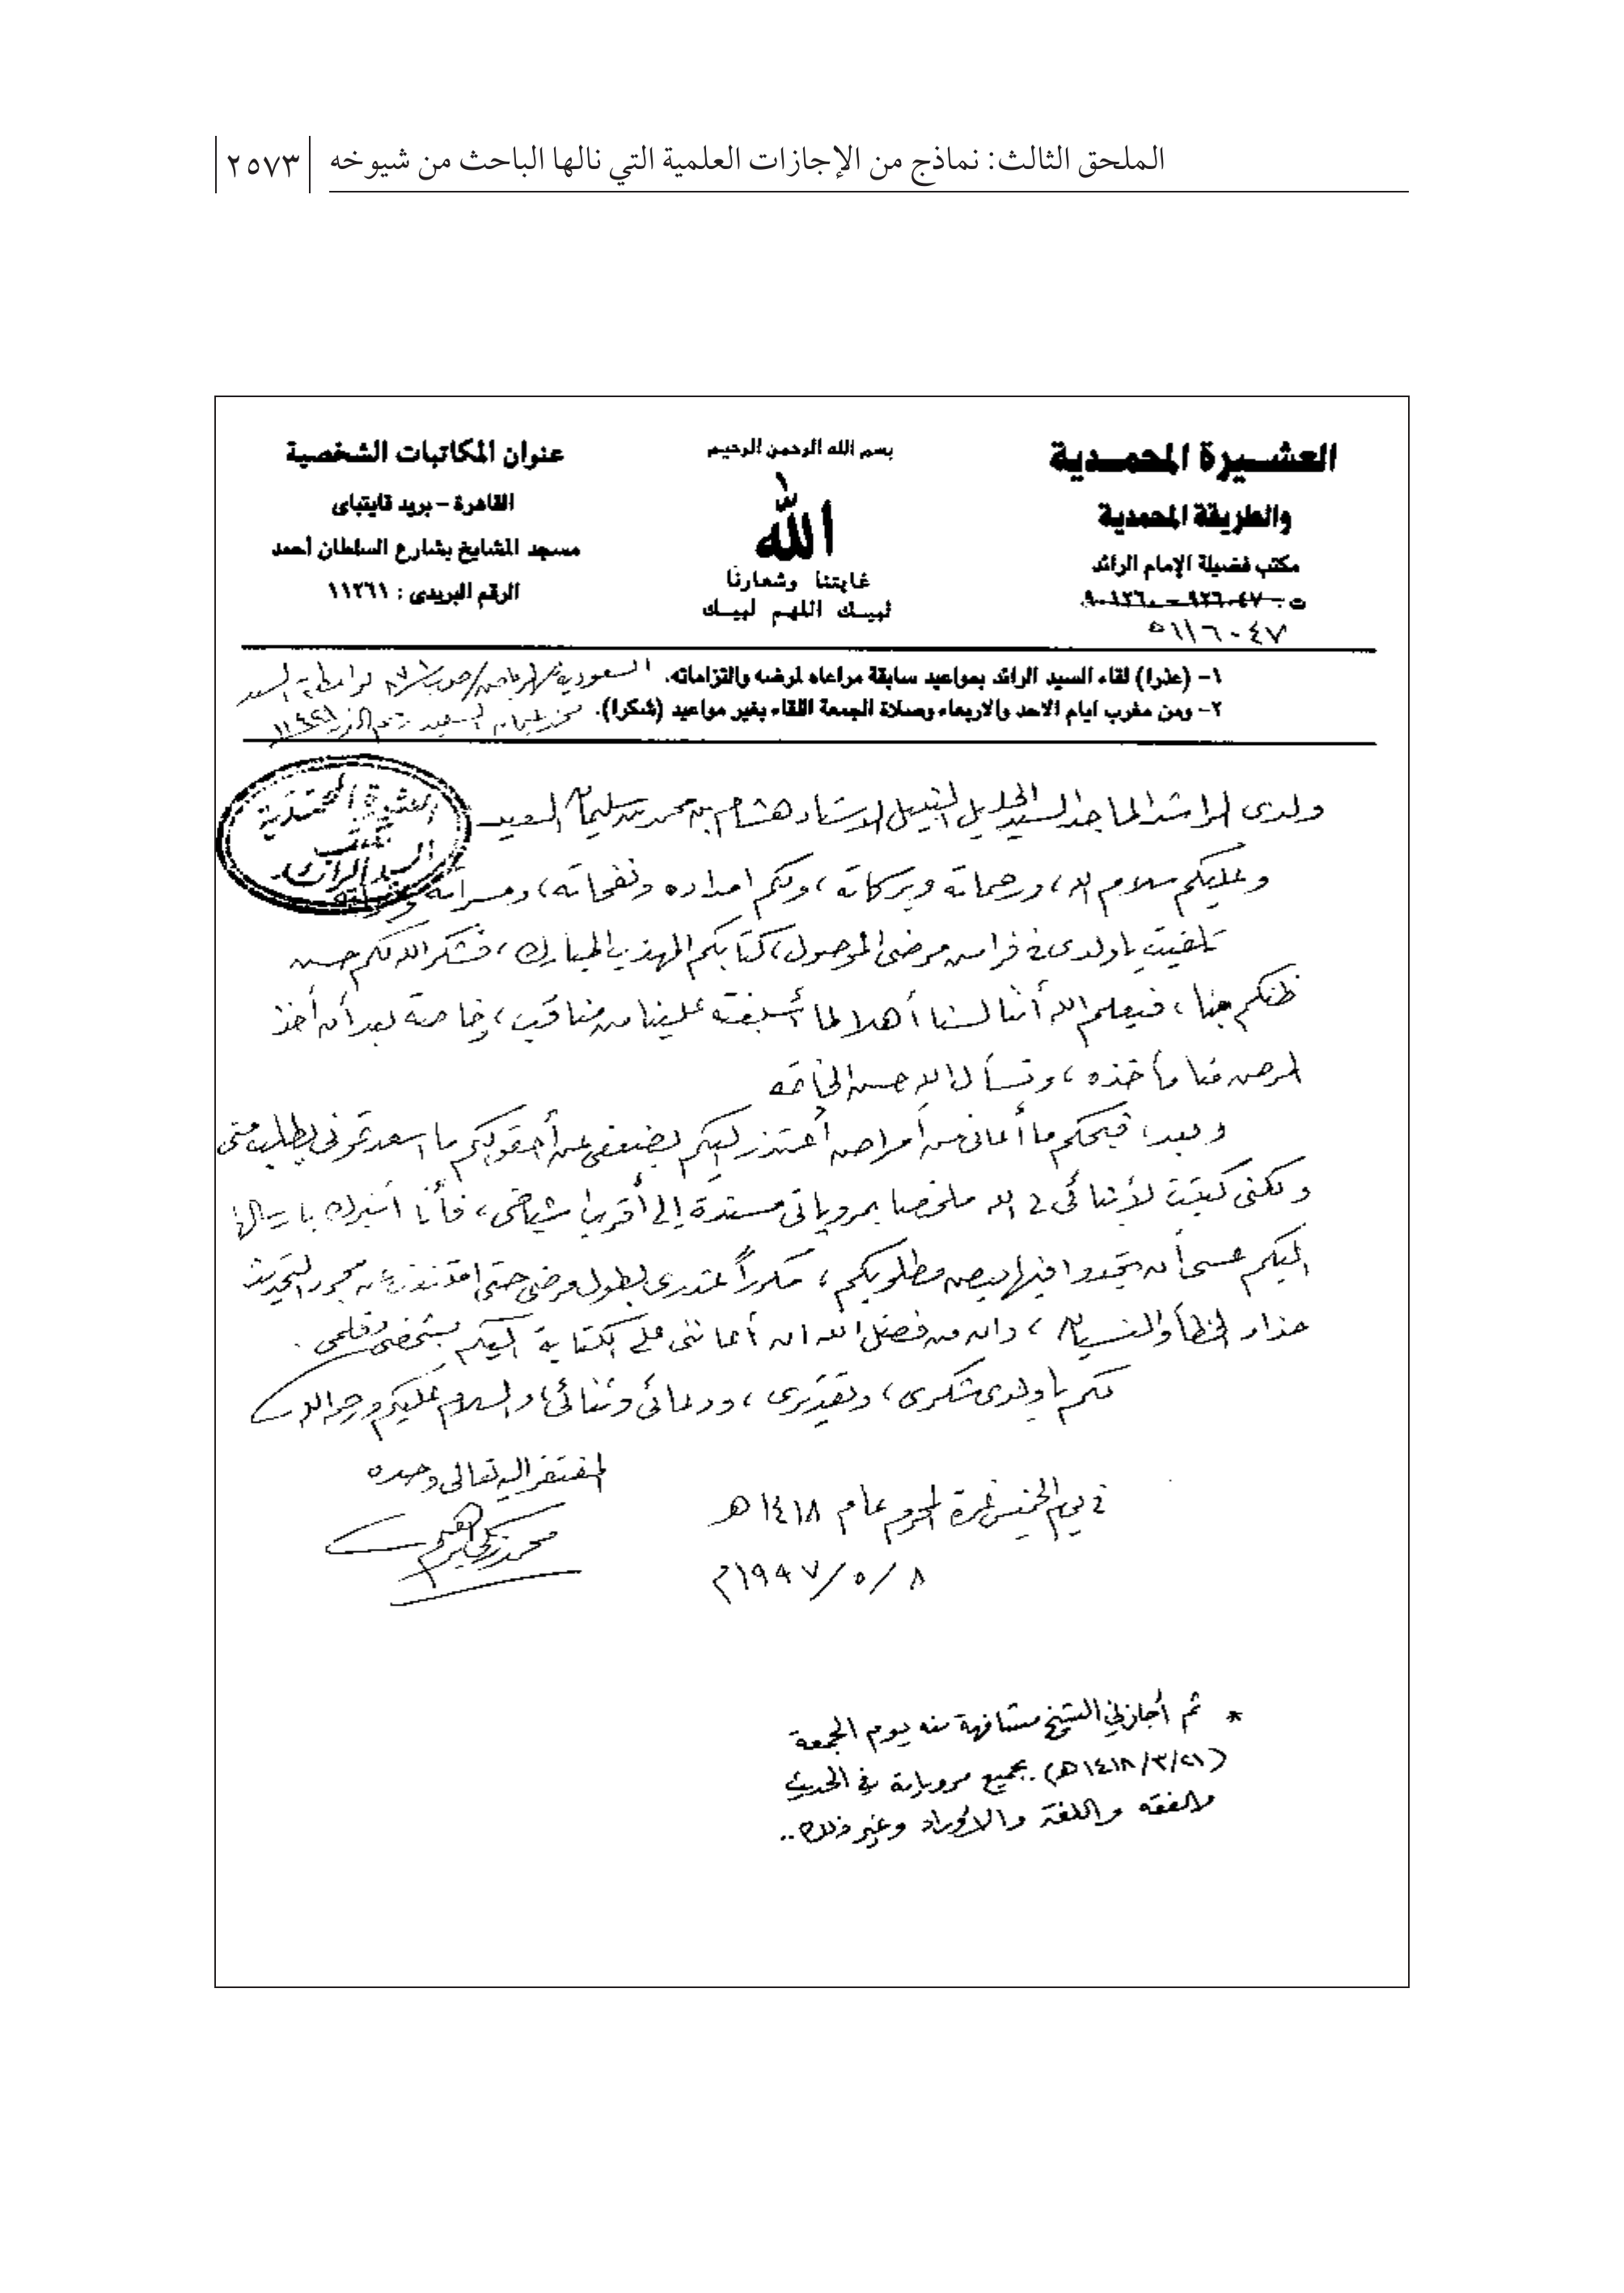 الملحق الثالث: نماذج من الإجازات العلمية التي نالها الباحث من شيوخه
٢٥٧٣
العشـيرة المحمـدية
والطريقة المحمدية
مكتب فضيلة الإمام الرائد
ت : ٩٢٦٠٤٧ –
٥١١٦٠٤٧
بسم الله الرحمن الرحيم
الله
غايتنا وشعارنا
لبيـك اللهم لبيـك
عنوان المكاتبات الشخصية
القاهرة – بريد قايتباى
مسجد المشايخ بشارع السلطان أحمد
الرقم البريدى : ١١٢٦١
١- (عذرا) لقاء السيد الرائد بمواعيد سابقة مراعاه لمرضه والتزاماته.
٢- ومن مغرب ايام الاحد والاربعاء وصلاة الجمعة اللقاء بغير مواعيد (شكرا).
السعودية / الرياض / ص ب
العشيرة المحمدية
مكتب
السيد الرائد
ولدى الراشد الماجد السيد الجليل النبيل الاستاذ هشام بن محمد بن سليمان السعيد
وعليكم سلام الله، ورحماته وبركاته، ولكم امداده ونفحاته، ومسراته
تلقيت يا ولدى فى فراش مرضى الموصول، كتابكم المهذب المبارك، فشكر الله لكم حسن
ظنكم بنا، فيعلم الله أننا لسنا أهلا لما أسبغته علينا من مناقب، وخاصة بعد أن أخذ
المرض منا مأخذه، ونسأل الله حسن الخاتمة
وبعد، فبحكم ما أعانى من أمراض أعتذر إليكم لضعفى عن أحقق لكم ما اسعدتمونى بطلبه منى
ولكنى كتبت لأبنائى فى الله ملخصا بمروياتى مسندة إلى أقرب اشياخى، فأنا أتبرك بإرسالها
اليكم عسى أن تجدوا فيها بعض مطلوبكم، مكرراً عذرى لطول مرضى حتى عن مجرد التحديث
حذار الخطأ والنسيان، وانه من فضل الله ان أعاننى على الكتابة اليكم بشخصى وقلمى.
لكم يا ولدى شكرى، وتقديرى، ودعائى وثنائى، والسلام عليكم ورحمة الله
المفتقر اليه تعالى وحده
محمد زكى إبراهيم
فى يوم الخميس غرة المحرم عام ١٤١٨ هـ
٨ / ٥ / ١٩٩٧م
* ثم أجازني الشيخ مشافهة منه يوم الجمعة
(٢١/٣/١٤١٨هـ) بجميع مروياته في الحديث
والفقه واللغة والأوراد وغير ذلك..